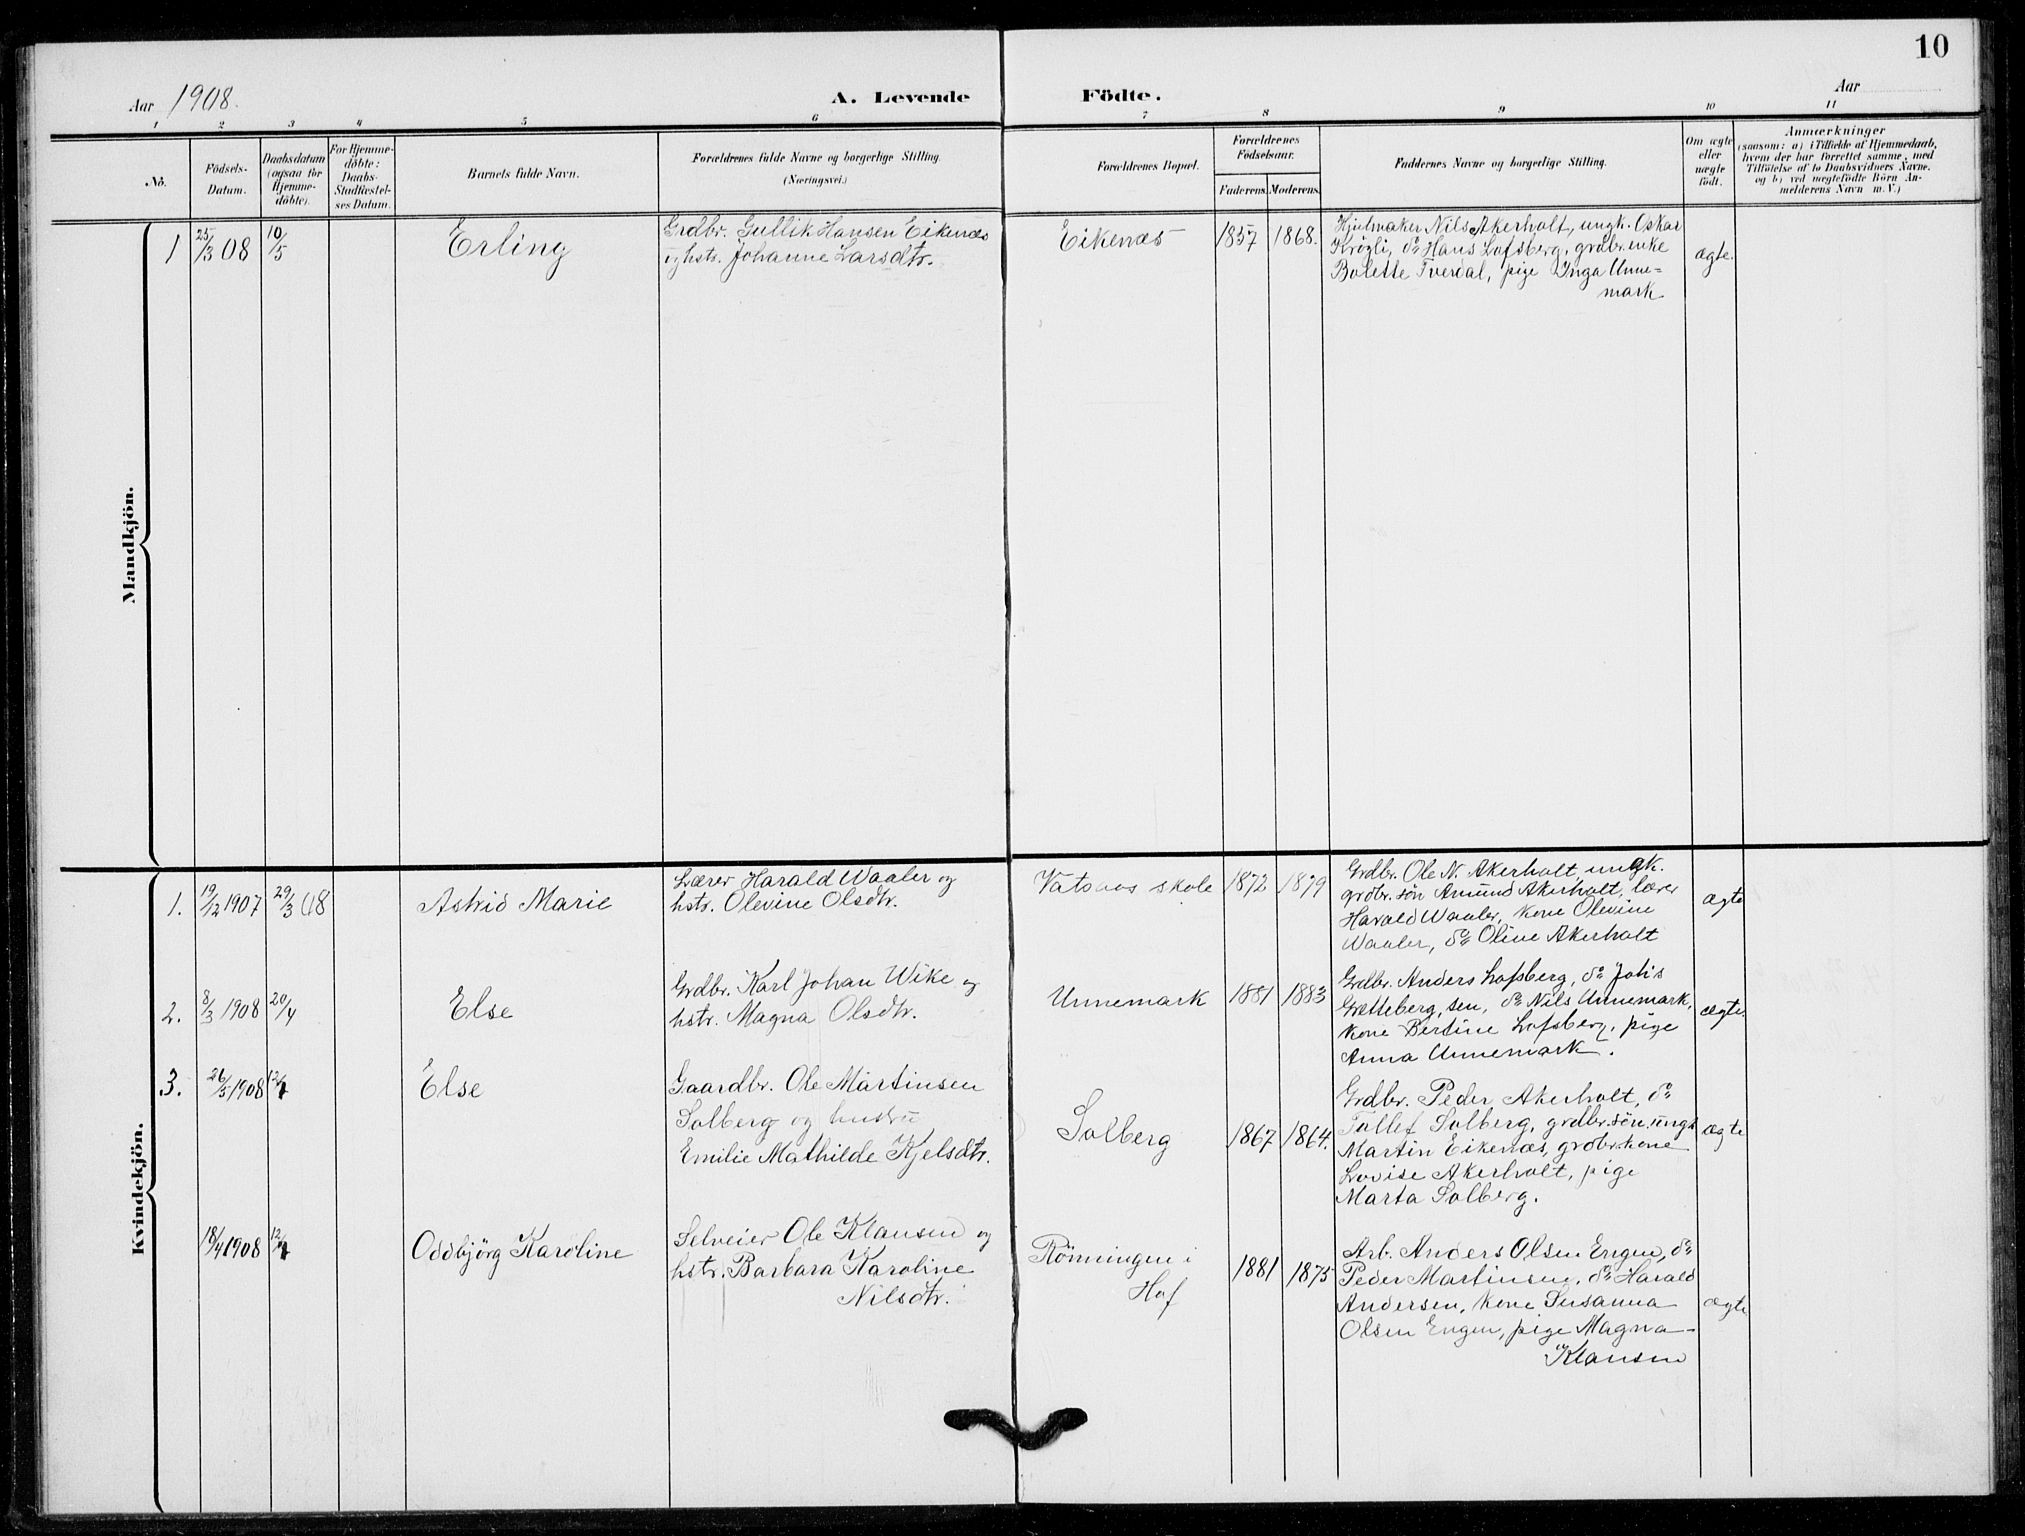 10
Aar 1908.
A. Levende Födte.
Aar
1 2 3 4 5 6 7 8 9 10 11
No.
Födsels-
Datum.
Daabsdatum
(ogsaa for
Hjemme-
döbte).
For Hjemme-
döbte:
Daabs-
Stadfæstel-
ses Datum.
Barnets fulde Navn.
Forældrenes fulde Navne og borgerlige Stilling.
(Næringsvei.)
Forældrenes Bopæl.
Forældrenes
Födselsaar.
Faderens. Moderens.
Faddernes Navne og borgerlige Stilling.
Om ægte
eller
uægte
födt.
Anmærkninger
(saasom: a) i Tilfælde af Hjemmedaab,
hvem der har forrettet samme, med
Tilföielse af to Daabsvidners Navne.
og b) ved uægtefödte Börn An-
melderens Navn m. V.)
Mandkjön.
1 25/3 08 10/5
Erling
Grdbr. Gullik Hansen Eikenæs
og hstr. Johanne Larsdtr.
Eikenæs
1857 1868.
Hjulmaker Nils Akerholt, ungk. Oskar
Krøgli, do Hans Lofsberg, grdbr.enke
Bolette Tverdal, pige Inga Unne=
mark
ægte.
Kvindekjön.
1. 19/12 1907 29/3 08
Astrid Marie
Lærer Harald Waaler og
hstr. Olevine Olsdtr.
Vatsaas skole
1872 1879
Grdbr. Ole N. Akerholt, ungk.
grdbr.søn Amund Akerholt, lærer
Harald Waaler, kone Olevine
Waaler, do Oline Akerholt
ægte
2. 8/3 1908 20/4
Else
Grdbr. Karl Johan Wike og
hstr. Magna Olsdtr.
Unnemark
1881 1883
Grdbr. Anders Lofsberg, do Johs
Grætteberg, sen, do Nils Unnemark,
kone Bertine Lofsberg, pige
Anna Unnemark.
ægte.
3. 26/5 1908 12/7
Else
Gaardbr. Ole Martinsen
Solberg og hustru
Emilie Mathilde Kjelsdtr.
Solberg
1867 1864.
Grdbr. Peder Akerholt, do
Tollef Solberg, grdbr.sön. ungk
Martin Eikenæs, grdbr.kone
Lovise Akerholt, pige
Marta Solberg.
ægte
18/4 1908 12/7
Oddbjörg Karoline
Selveier Ole Klausen og
hstr. Barbara Karoline
Nilsdtr.
Rönningen i
Hof
1881 1875
Arb. Anders Olsen Engen, do
Peder Martinsen, do Harald
Andersen, kone Susanna
Olsen Engen, pige Magna
Klausen
ægte